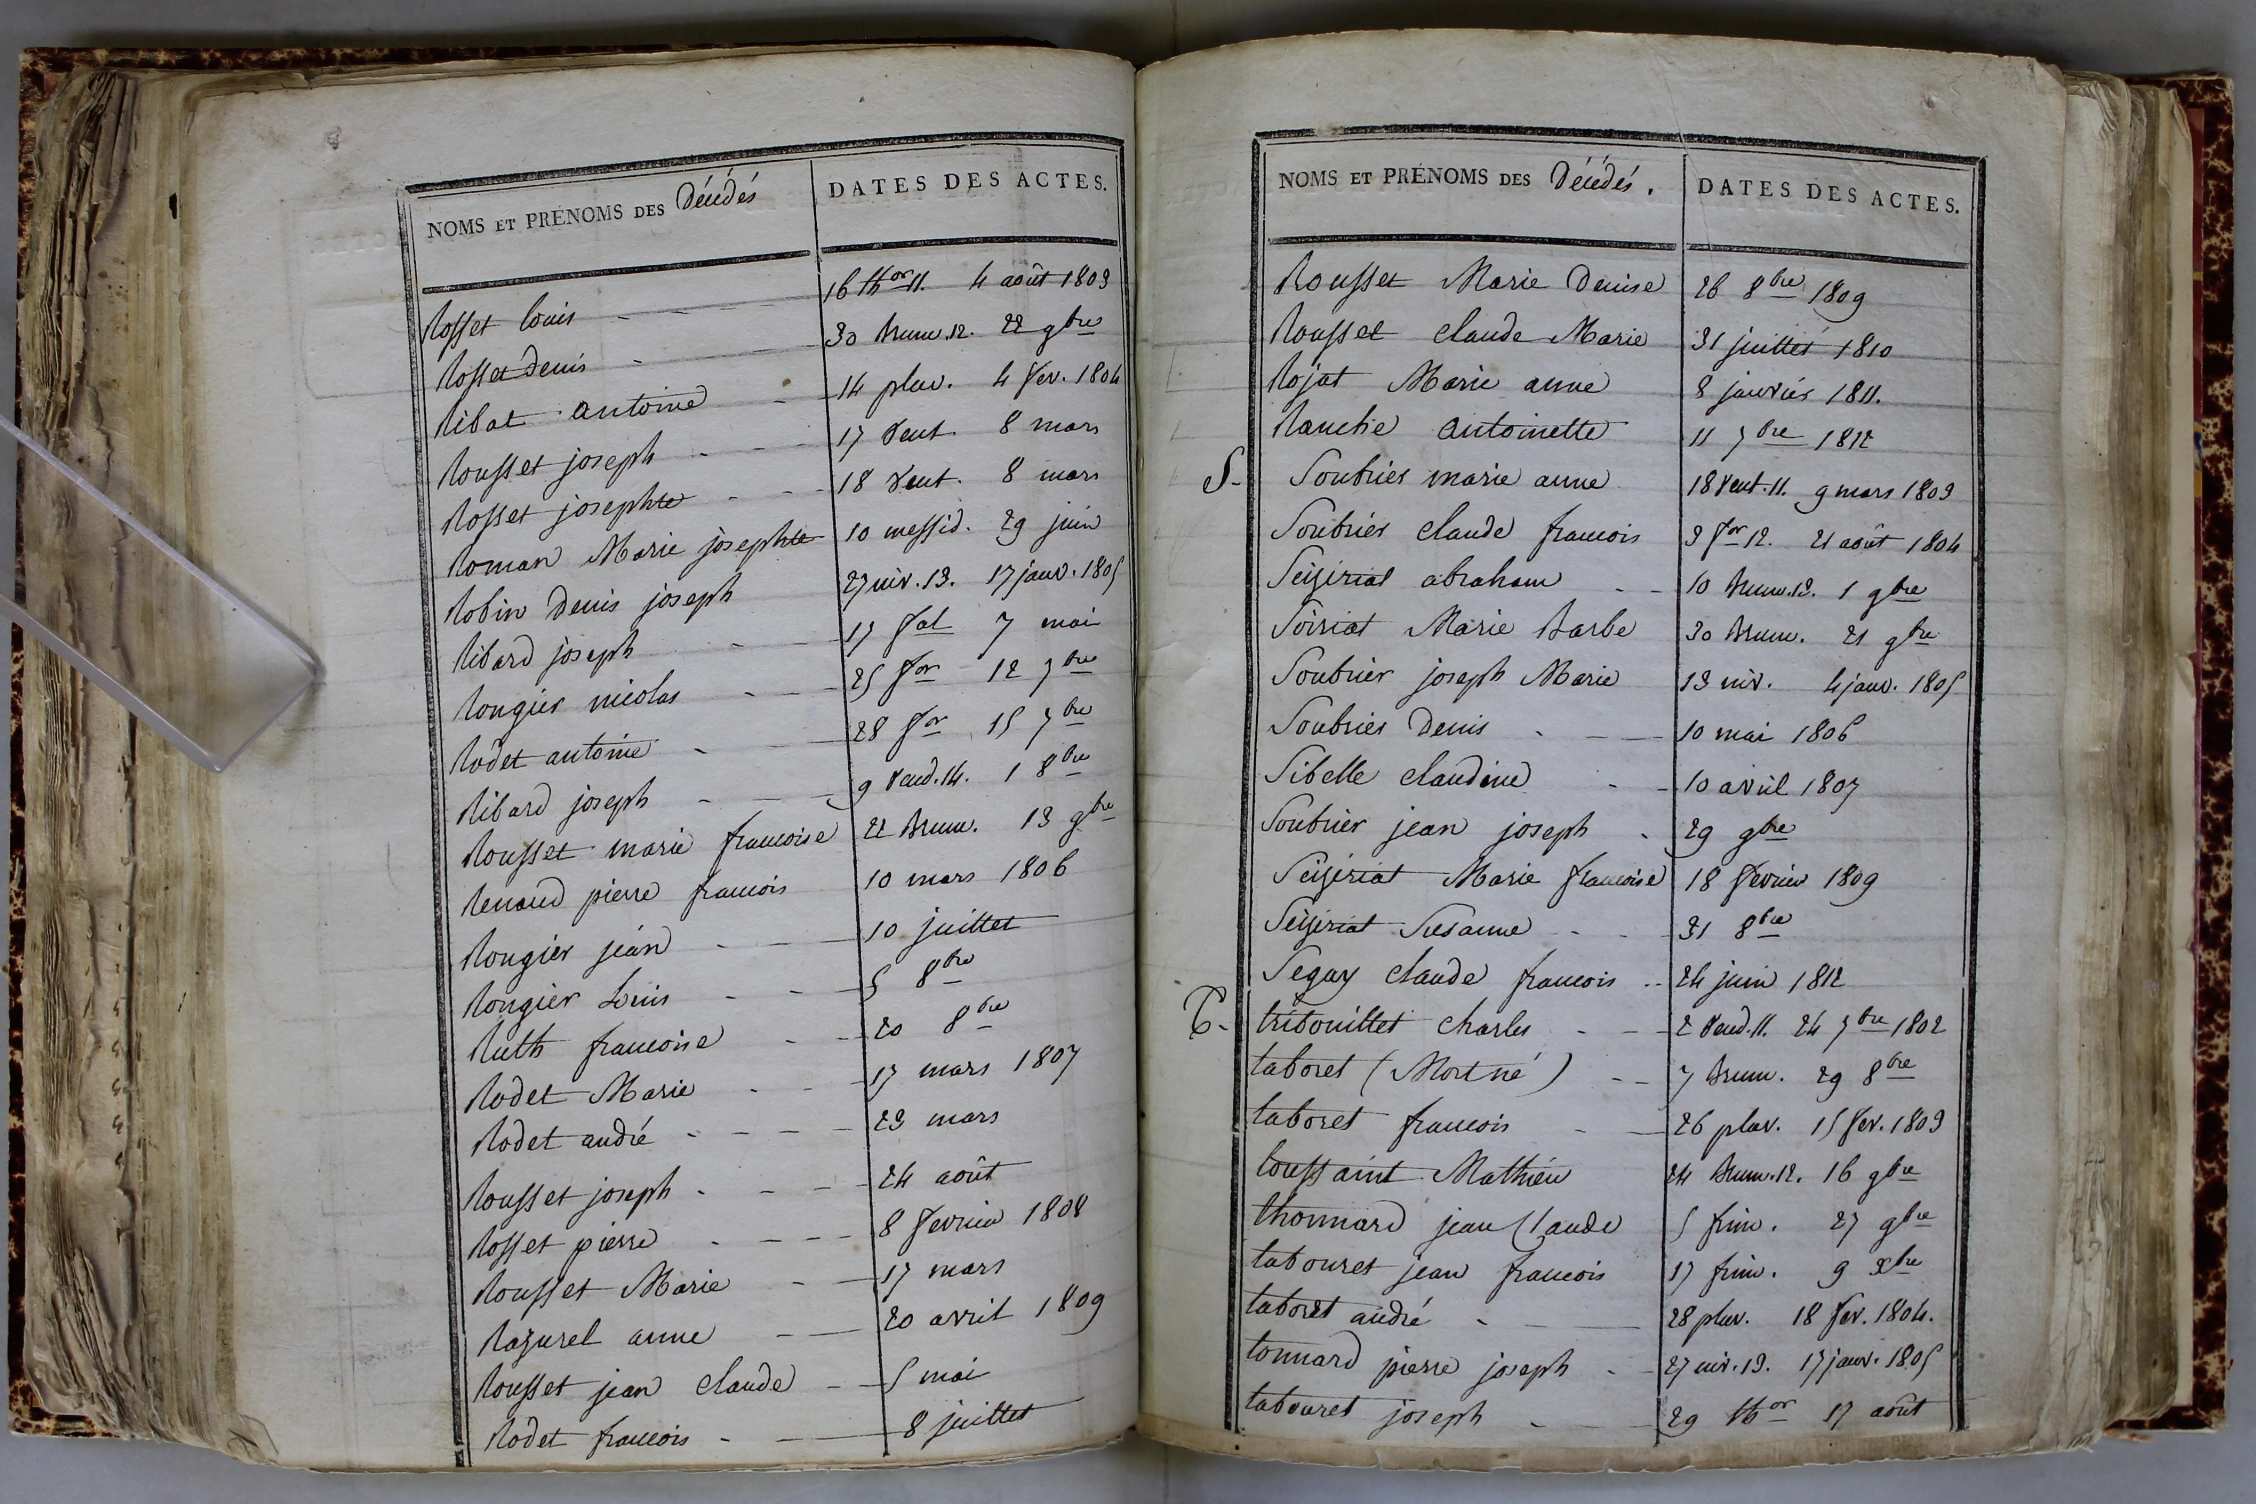 NOMS ET PRÉNOMS DES Décédés DATES DES ACTES.
Rosset louis - - - 16 thor 11. 4 août 1803
Rosset denis - - 30 brum. 12. 22 9bre
Ribat antoine - 14 pluv. 4 fev. 1804
Rousset joseph - - 17 vent. 8 mars
Rosset josephte - - 18 vent. 8 mars
Roman Marie josephte 10 messid. 29 juin
Robin denis joseph 27 niv. 13. 17 janv. 1805
Ribard joseph - - 17 fal 7 mai
Rougier nicolas - - 25 for 12 7bre
Rodet antoine - - 28 for 15 7bre
Ribard joseph - - 9 vend. 14. 1 8bre
Rousset marie francoise 22 brum. 13 9bre
Renaud pierre francois 10 mars 1806
Rougier jean - - - 10 juillet
Rougier Louis - - - 5 8bre
Ruth francoise - - 20 8bre
Rodet Marie - - - 17 mars 1807
Rodet andré - - - - 23 mars
Rousset joseph - - - - 24 août
Rosset pierre - - - - 8 fevrier 1808
Rousset Marie - - 17 mars
Razurel anne - - 20 avril 1809
Rousset jean claude - - 5 mai
Rodet francois - - 8 juillet
NOMS ET PRÉNOMS DES Décédés. DATES DES ACTES.
Rousset Marie Denise 26 8bre 1809
Rousset claude Marie 31 juillet 1810
Rojat Marie anne 8 janvier 1811.
Ranche antoinette 11 7bre 1812
S- Soubrier marie anne 18 vent. 11. 9 mars 1803
Soubrier claude francois 3 for 12. 21 août 1804
Seiziriat abraham - - 10 brum. 13. 1 9bre
Soiriat Marie barbe 30 brum. 21 9bre
Soubrier joseph Marie 13 niv. 4 janv. 1805
Soubrier Denis - - - 10 mai 1806
Sibelle claudine - - 10 avril 1807
Soubrier jean joseph - 29 9bre
Seiziriat Marie francoise 18 fevrier 1809
Seiziriat Susanne - - 31 8bre
Seguy claude francois - - 24 juin 1812
T- tribouillet charles - - - 2 vend. 11. 24 7bre 1802
taboret (Mort né) - - 7 brum. 29 8bre
taboret francois - - 26 pluv. 15 fev. 1803
toussaint Mathieu 24 brum. 12. 16 9bre
thonnard jean Claude 5 frim. 27 9bre
tabouret jean francois 17 frim. 9 xbre
taboret andré - - 28 pluv. 18 fev. 1804.
tonnard pierre joseph - - 27 niv. 13. 17 janv. 1805
tabouret joseph - - 29 thor 17 août